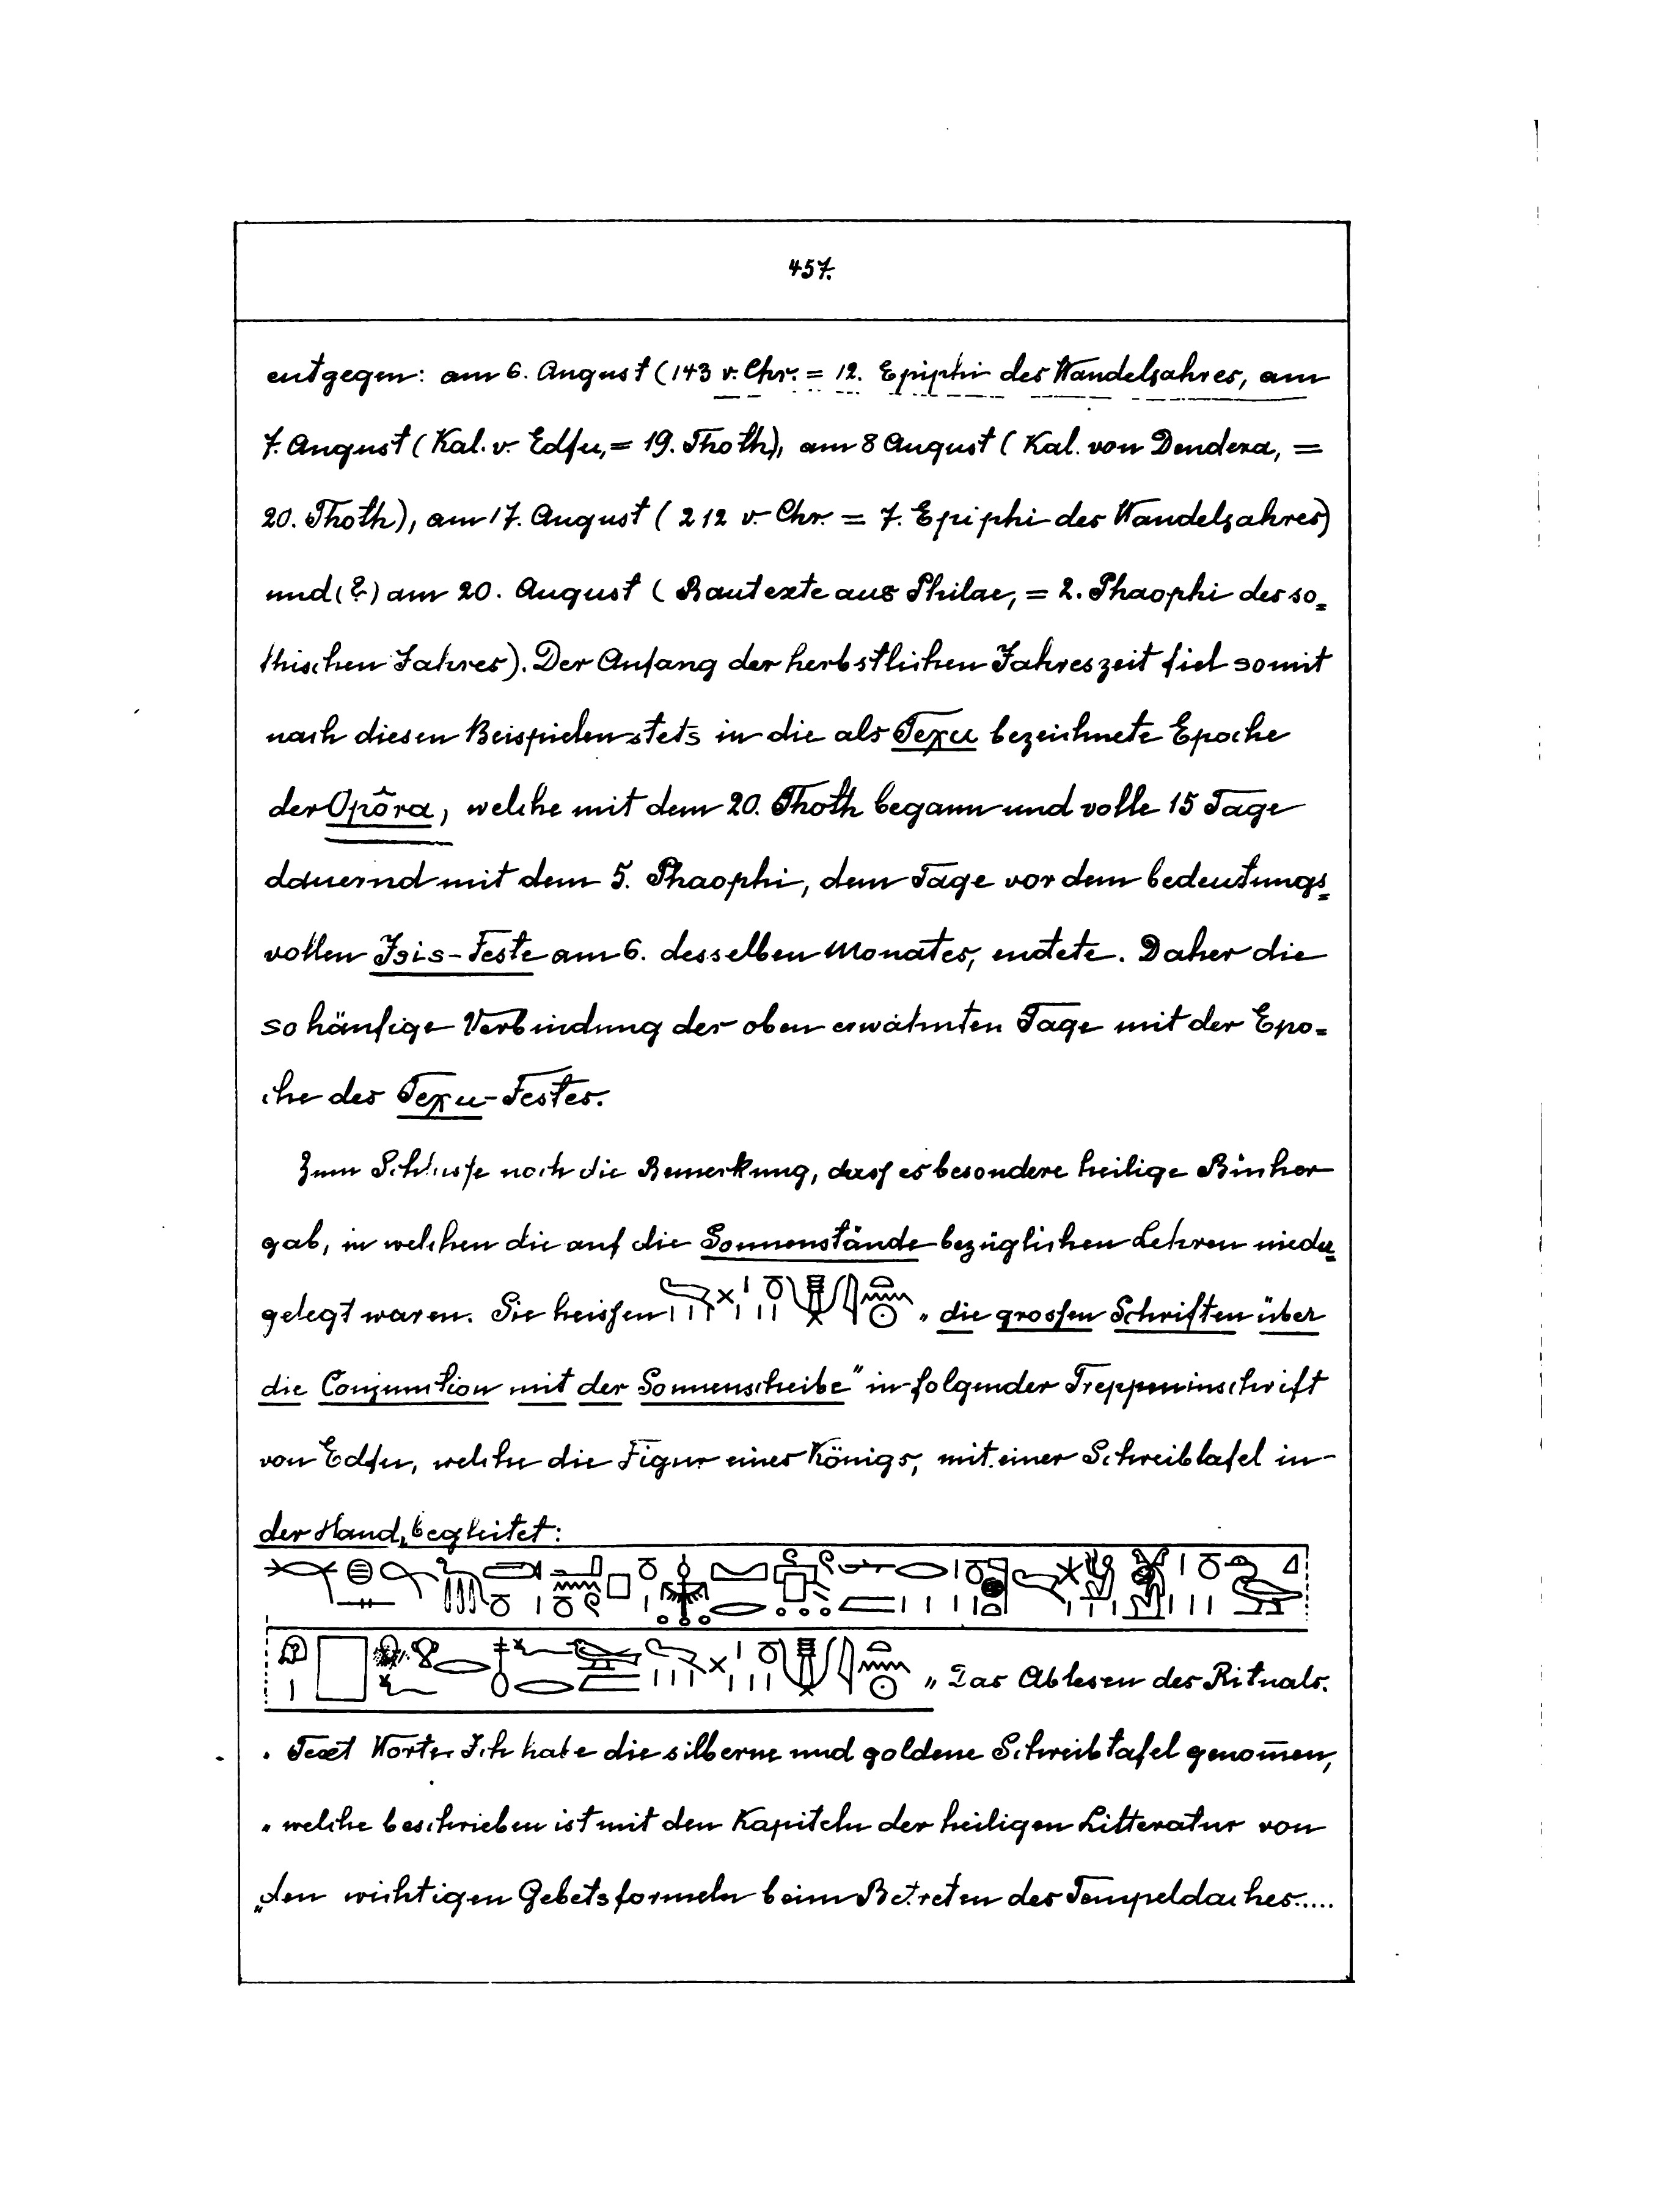 457.
entgegen: am 6. August (143 v. Chr. = 12. Epiphi des Wandeljahres, am
7. August (Kal. v. Edfu, = 19. Thoth), am 8 August (Kal. von Dendera, =
20. Thoth), am 17. August (212 v. Chr. = 7. Epiphi des Wandeljahres)
und (?) am 20. August (Bautexte aus Philae, = 2. Phaophi des so=
thischen Jahres). Der Anfang der herbstlichen Jahreszeit fiel somit
nach diesen Beispielen stets in die als Teχu bezeichnete Epoche
der Opôra, welche mit dem 20. Thoth begann und volle 15 Tage
dauernd mit dem 5. Phaophi, dem Tage vor dem bedeutungs=
vollen Isis-Feste am 6. desselben Monates, endete. Daher die
so häufige Verbindung der oben erwähnten Tage mit der Epo=
che des Teχu-Festes.
Zum Schlusse noch die Bemerkung, dass es besondere heilige Bücher
gab, in welchen die auf die Sonnenstände bezüglichen Lehren nieder=
gelegt waren. Sie heissen „die grossen Schriften über
die Conjunction mit der Sonnenscheibe" in folgender Treppeninschrift
von Edfu, welche die Figur eines Königs, mit einer Schreibtafel in
der Hand, begleitet:
„Das Ablesen des Rituals.
„Text Worte: Ich habe die silberne und goldene Schreibtafel genom̅en,
„welche beschrieben ist mit den Kapiteln der heiligen Litteratur von
„den wichtigen Gebetsformeln beim Betreten des Tempeldaches.....